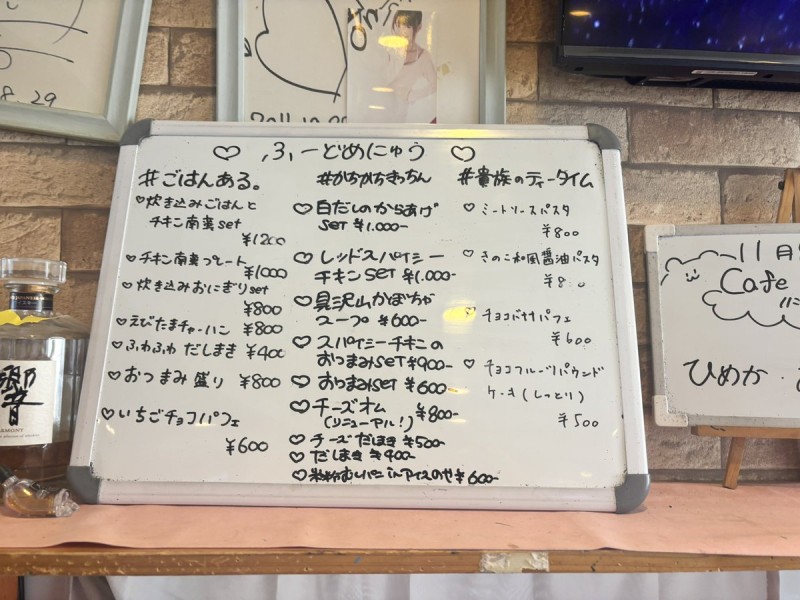 8.29
♡ ふーどめにゅう ♡
#ごはんある。
♡炊き込みごはんと
チキン南蛮set
¥1200
♡チキン南蛮プレート
¥1000
♡炊き込みおにぎりset
¥800
♡えびたまチャーハン ¥800
♡ふわふわ だしまき ¥400
♡おつまみ盛り ¥800
♡いちごチョコパフェ
¥600
#かちかちきっちん
♡白だしのからあげ
SET ¥1.000-
♡レッドスパイシー
チキンSET ¥1.000-
♡具沢山かぼちゃ
スープ ¥600-
♡スパイシーチキンの
おつまみSET ¥900-
♡おつまみSET ¥600-
♡チーズオム
(リニューアル!) ¥800-
♡チーズだしまき ¥500-
♡だしまき ¥400-
♡米粉むしパン inアイスのせ ¥600-
#貴族のティータイム
♡ミートソースパスタ
¥800
♡きのこ和風醤油パスタ
♡チョコバナナパフェ
¥600
♡チョコフルーツパウンド
ケーキ(しっとり)
¥500
11月
Cafe
ひめか
響